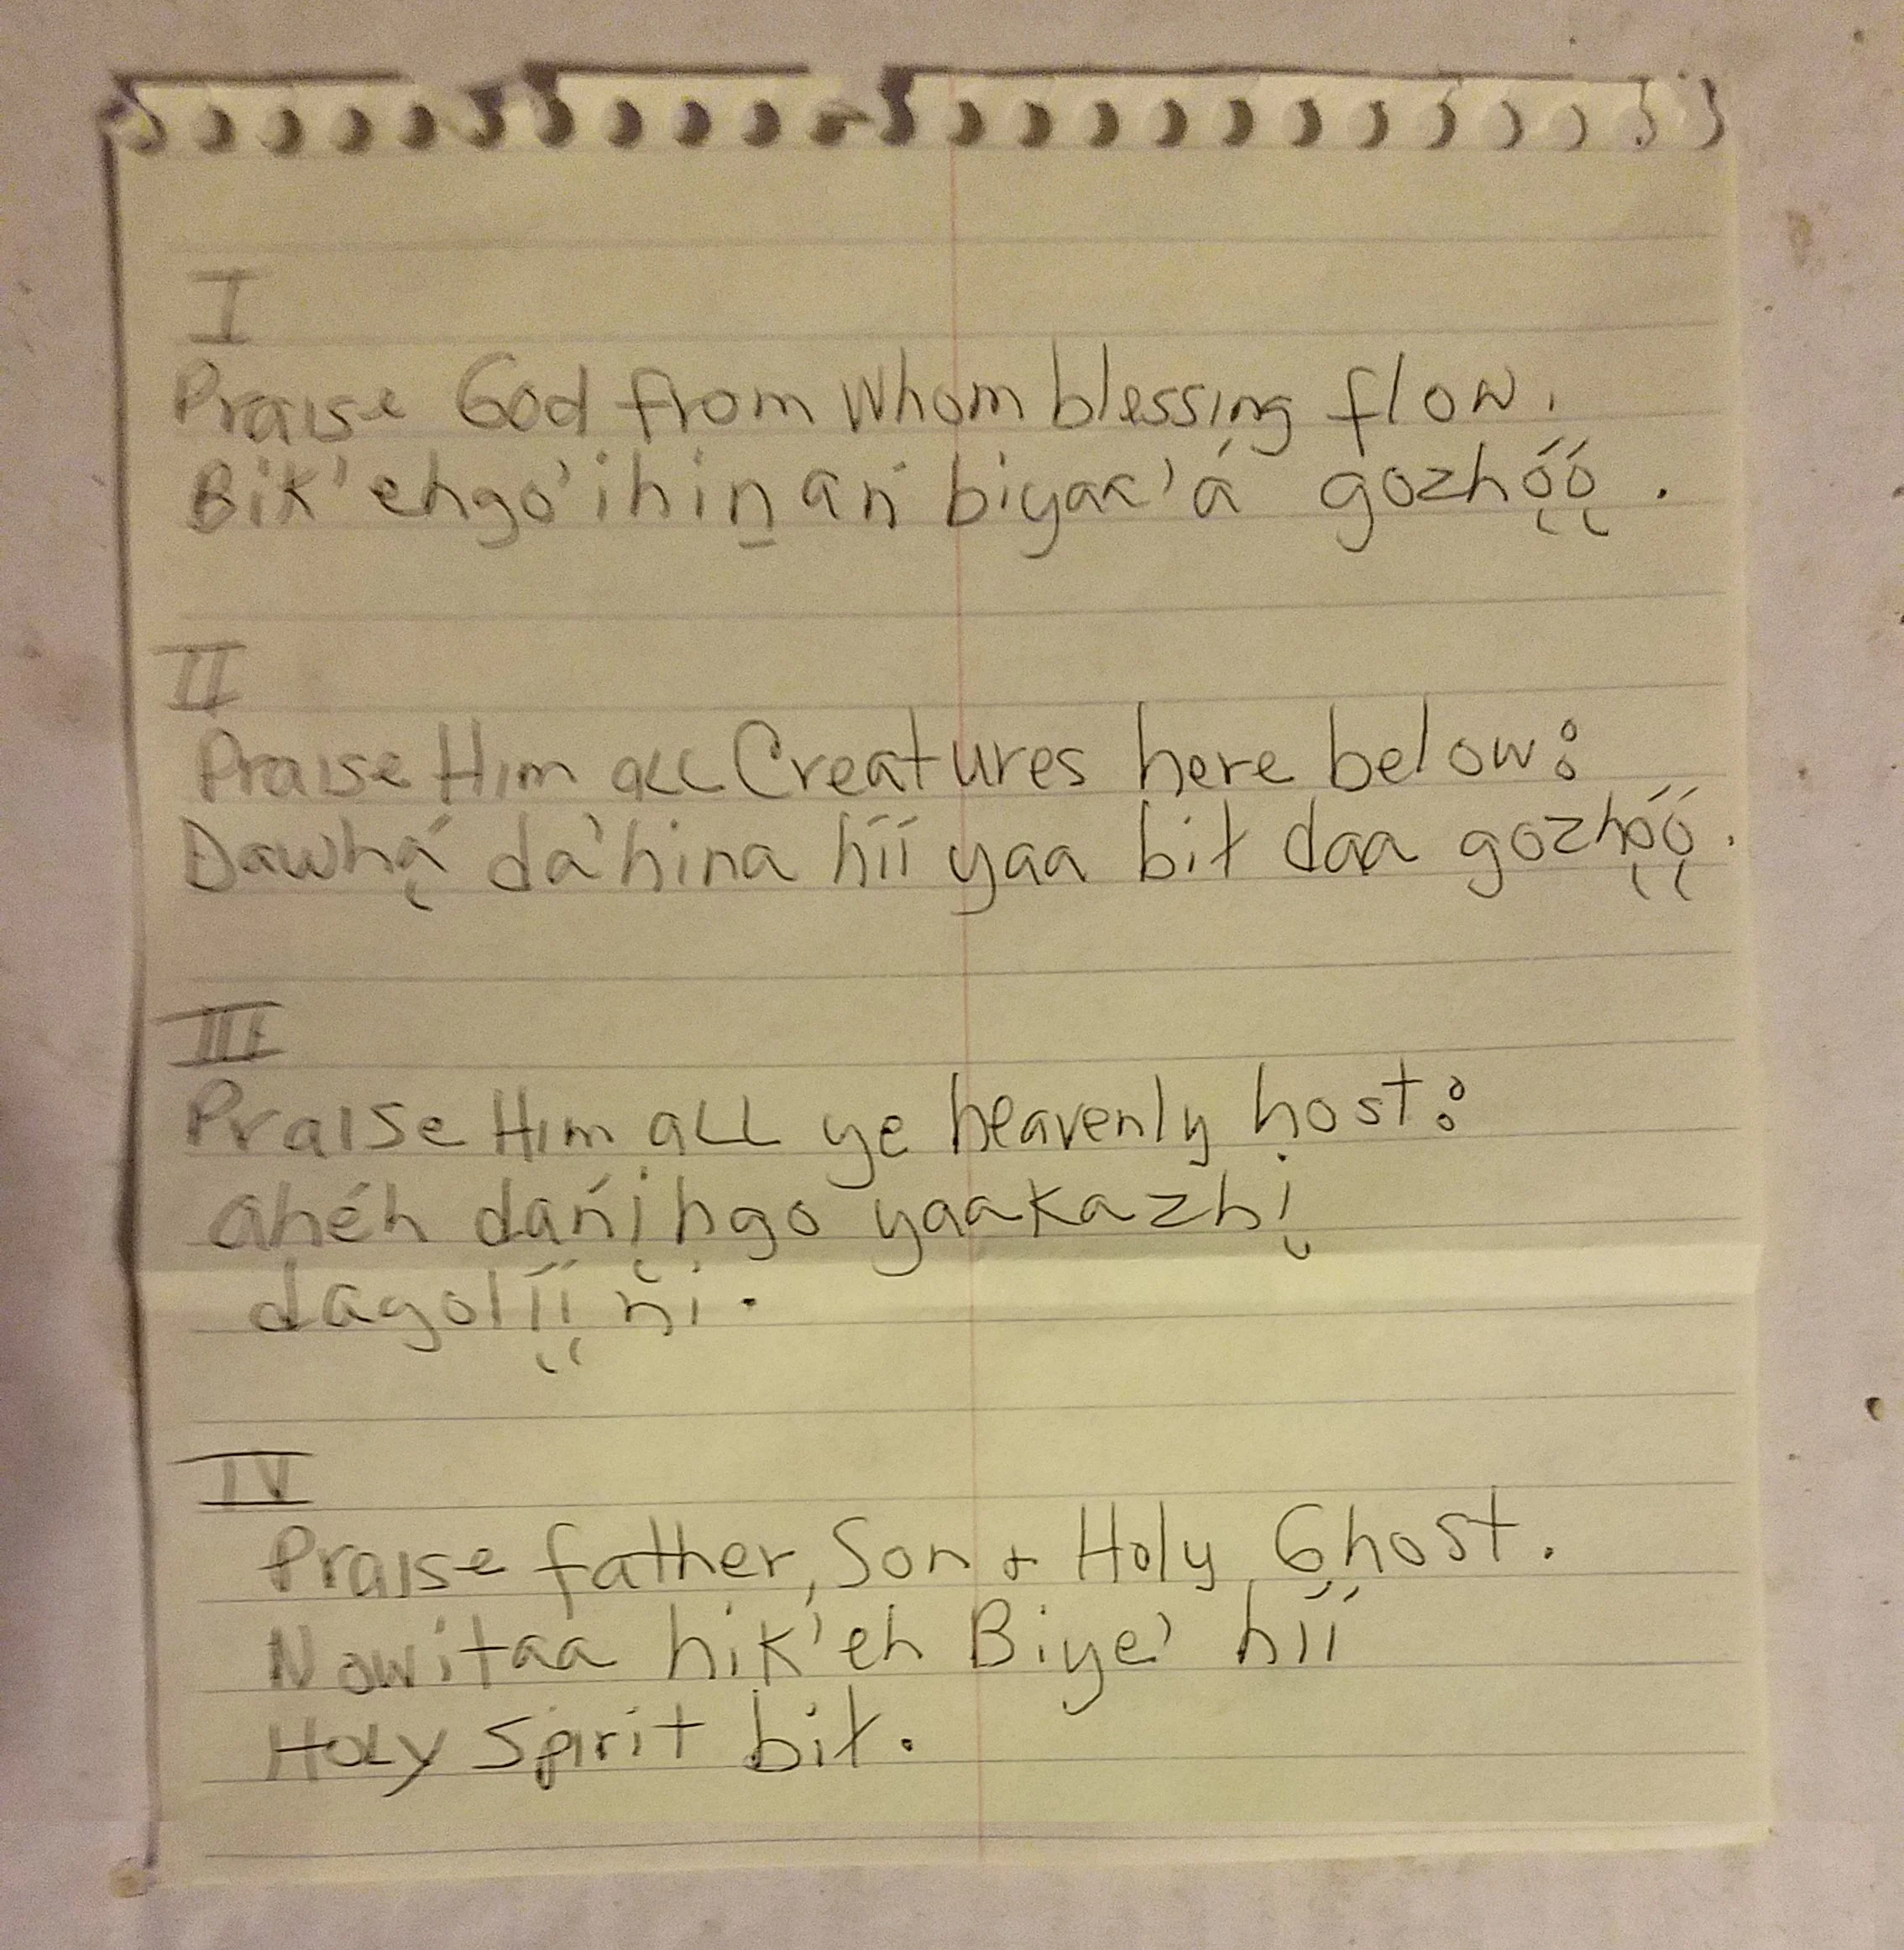 I
Praise God from Whom blessing flow.
Bik'ehgo'ihiṉań biyak'á gozhǫ́ǫ́.
II
Praise Him all Creatures here below:
Dawhą́ da'hina híí yaa bił daa gozhǫ́ǫ́.
III
Praise Him all ye heavenly host:
ahéh dańįhgo yaakazhį
dagolį́į́ ńi.
IV
Praise father, Son & Holy Ghost.
Nowitaa hik'eh Biye' híí
Holy Spirit bił.